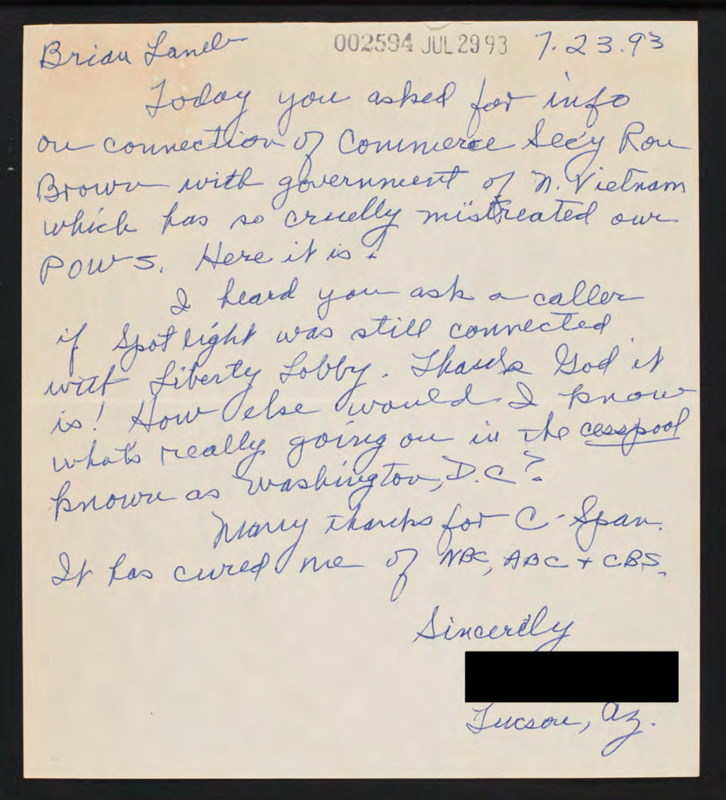 Brian Lamb
002594 JUL 29 93 7.23.93
Today you asked for info
on connection of Commerce Sec'y Ron
Brown with government of N. Vietnam
which has so cruelly mistreated our
POWS. Here it is!
I heard you ask a caller
if Spotlight was still connected
with Liberty Lobby. Thank God it
is! How else would I know
what's really going on in the cesspool
known as Washington, D.C?
Many thanks for C-Span.
It has cured me of NBC, ABC + CBS.
Sincerely
Tucson, Az.